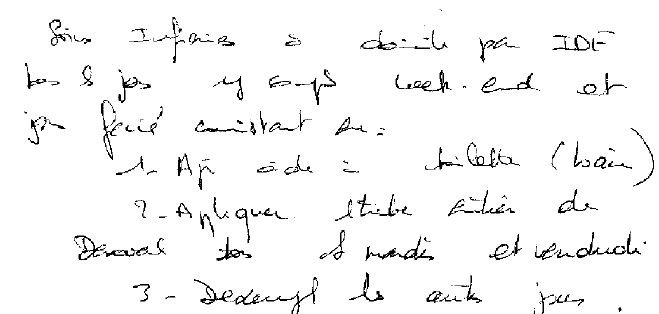 Soins Infirmiers à domicile par IDE
tous les jours y compris week-end et
jours férié consistant en :
1- aide à toilette (bain)
2- Appliquer 1 tube entier de
Dermoval tous les mardis et vendredi
3 - les autres jours.